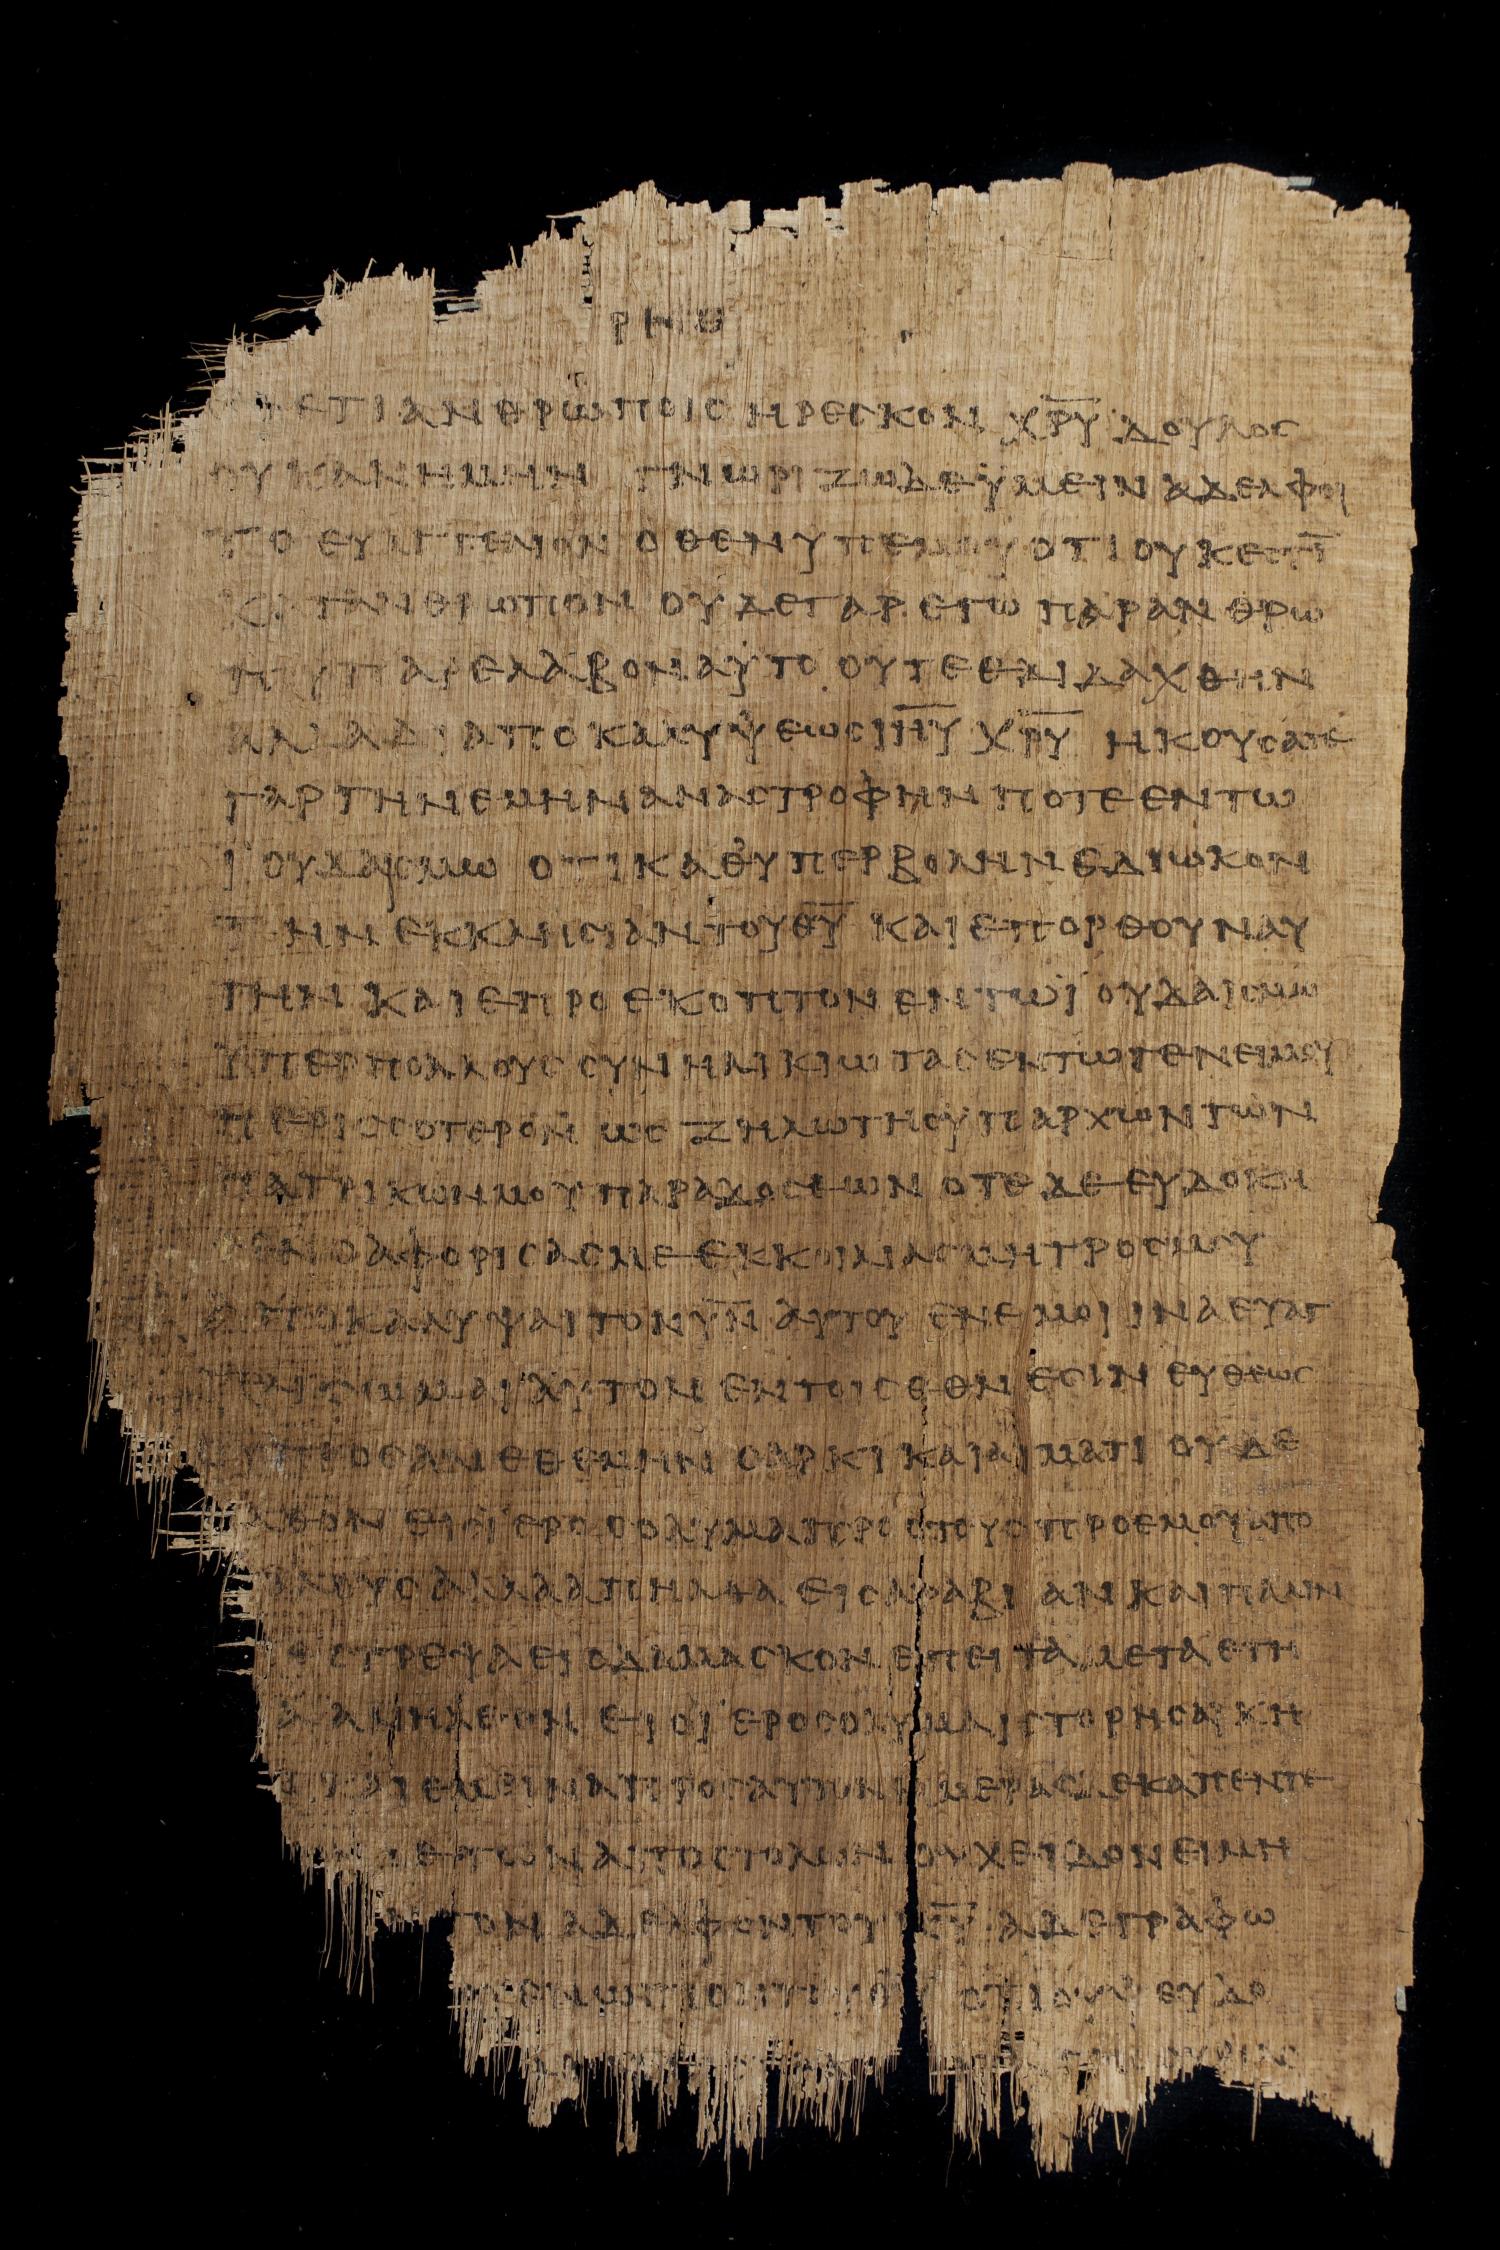 ΡΝΘ
ΕΤΙ ΑΝΘΡΩΠΟΙΣ ΗΡΕΣΚΟΝ ΧΡΥ ΔΟΥΛΟΣ
ΟΥΚ ΑΝ ΗΜΗΝ ΓΝΩΡΙΖΩ ΔΕ ΫΜΕΙΝ ΑΔΕΛΦΟΙ
ΤΟ ΕΥΑΓΓΕΛΙΟΝ Ο ΘΕΝ ΥΠ ΕΜΟΥ ΟΤΙ ΟΥΚ ΕΣΤΙ
ΚΑΤ ΑΝΘΡΩΠΟΝ ΟΥΔΕ ΓΑΡ ΕΓΩ ΠΑΡΑ ΑΝΘΡΩ
ΠΟΥ ΠΑΡΕΛΑΒΟΝ ΑΥΤΟ ΟΥΤΕ ΕΔΙΔΑΧΘΗΝ
ΑΛΛΑ ΔΙ ΑΠΟΚΑΛΥΨΕΩΣ ΙΗΥ ΧΡΥ ΗΚΟΥΣΑΤΕ
ΓΑΡ ΤΗΝ ΕΜΗΝ ΑΝΑΣΤΡΟΦΗΝ ΠΟΤΕ ΕΝ ΤΩ
ΙΟΥΔΑΙΣΜΩ ΟΤΙ ΚΑΘ ΥΠΕΡΒΟΛΗΝ ΕΔΙΩΚΟΝ
ΤΗΝ ΕΚΚΛΗΣΙΑΝ ΤΟΥ ΘΥ ΚΑΙ ΕΠΟΡΘΟΥΝ ΑΥ
ΤΗΝ ΚΑΙ ΕΠΡΟΕΚΟΠΤΟΝ ΕΝ ΤΩ ΙΟΥΔΑΙΣΜΩ
ΫΠΕΡ ΠΟΛΛΟΥΣ ΣΥΝΗΛΙΚΙΩΤΑΣ ΕΝ ΤΩ ΓΕΝΕΙ ΜΟΥ
ΠΕΡΙΣΣΟΤΕΡΟΝ ΩΣ ΖΗΛΩΤΗΣ ΥΠΑΡΧΩΝ ΤΩΝ
ΠΑΤΡΙΚΩΝ ΜΟΥ ΠΑΡΑΔΟΣΕΩΝ ΟΤΕ ΔΕ ΕΥΔΟΚΗ
ΣΕΝ Ο ΑΦΟΡΙΣΑΣ ΜΕ ΕΚ ΚΟΙΛΙΑΣ ΜΗΤΡΟΣ ΜΟΥ
ΑΠΟΚΑΛΥΨΑΙ ΤΟΝ ΥΝ ΑΥΤΟΥ ΕΝ ΕΜΟΙ ΙΝΑ ΕΥΑΓ
ΓΕΛΙΣΩΜΑΙ ΑΥΤΟΝ ΕΝ ΤΟΙΣ ΕΘΝΕΣΙΝ ΕΥΘΕΩΣ
ΟΥ ΠΡΟΣΑΝΕΘΕΜΗΝ ΣΑΡΚΙ ΚΑΙ ΑΙΜΑΤΙ ΟΥΔΕ
ΛΘΟΝ ΕΙΣ ΪΕΡΟΣΟΛΥΜΑ ΠΡΟΣ ΤΟΥΣ ΠΡΟ ΕΜΟΥ ΑΠΟ
ΣΤΟΛΟΥΣ ΑΛΛΑ ΑΠΗΛΘΑ ΕΙΣ ΑΡΑΒΙΑΝ ΚΑΙ ΠΑΛΙΝ
ΕΣΤΡΕΨΑ ΕΙΣ ΔΑΜΑΣΚΟΝ ΕΠΕΙΤΑ ΜΕΤΑ ΕΤΗ
ΑΝΗΛΘΟΝ ΕΙΣ ΪΕΡΟΣΟΛΥΜΑ ΙΣΤΟΡΗΣΑΙ ΚΗ
ΚΑΙ ΕΜΕΙΝΑ ΠΡΟΣ ΑΥΤΟΝ ΗΜΕΡΑΣ ΔΕΚΑΠΕΝΤΕ
ΔΕ ΤΩΝ ΑΠΟΣΤΟΛΩΝ ΟΥΧ ΕΙΔΟΝ ΕΙ ΜΗ
ΤΟΝ ΑΔΕΛΦΟΝ ΤΟΥ ΚΥ Α ΔΕ ΓΡΑΦΩ
ΕΝΩΠΙΟΝ ΤΟΥ ΘΥ ΟΤΙ ΟΥ ΨΕΥΔΟ